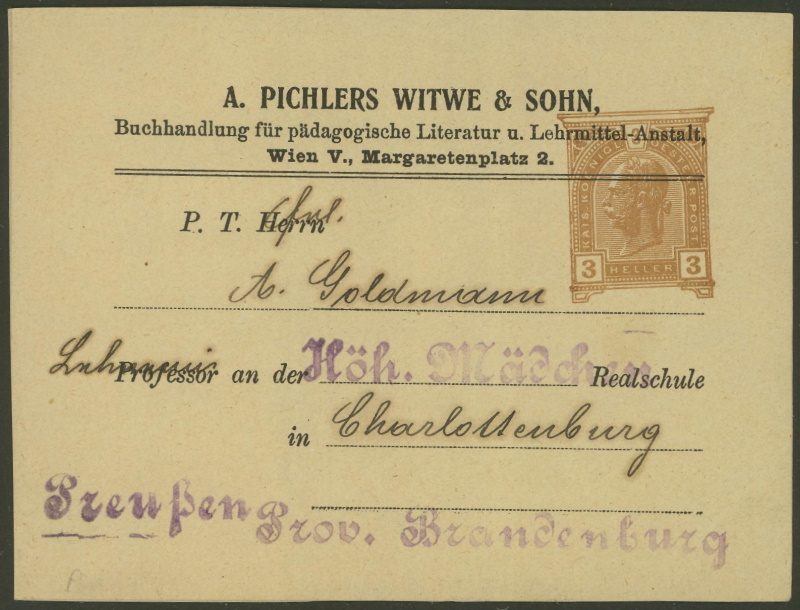 A. PICHLERS WITWE & SOHN,
Buchhandlung für pädagogische Literatur u. Lehrmittel-Anstalt,
Wien V., Margaretenplatz 2.
KAIS. KOENIGL. OESTERR. POST
3
3 HELLER 3
P. T. Herrn Frl.
A. Goldmann
Lehrerin Professor an der Höh. Mädchen Realschule
in Charlottenburg
Preußen Prov. Brandenburg